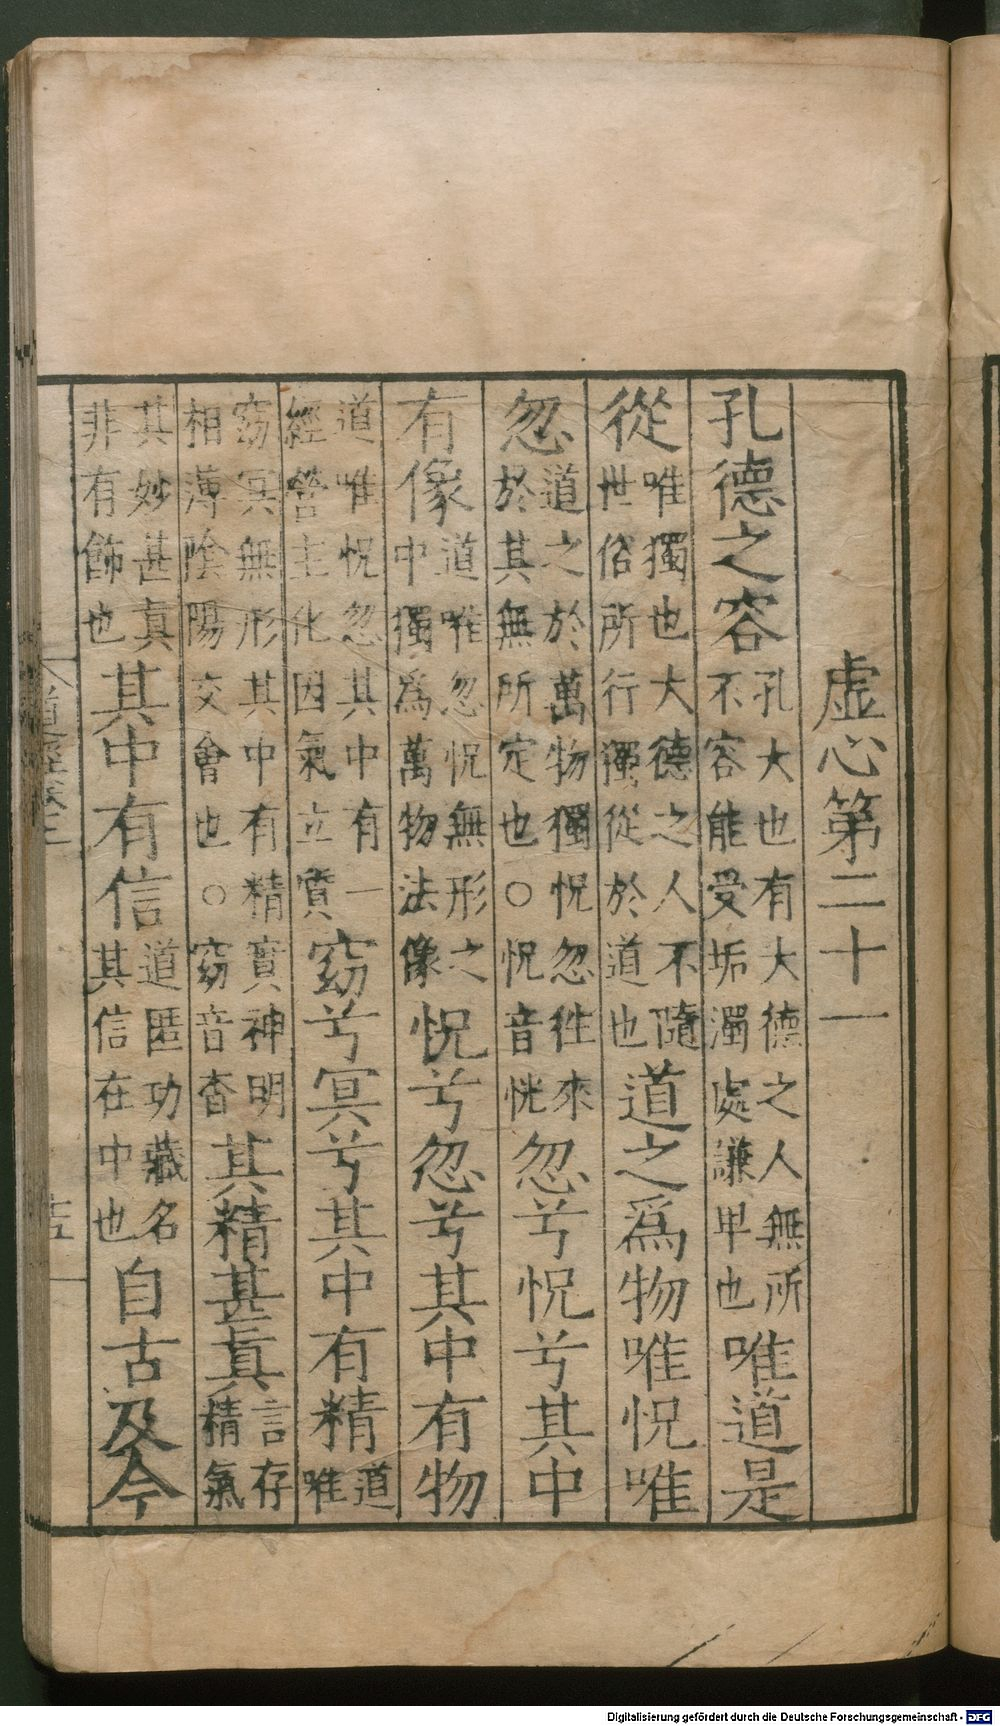 虚心第二十一
孔德之容孔大也有大德之人無所不容能受垢濁處謙卑也唯道是
從唯獨也大德之人不隨世俗所行獨從於道也道之爲物唯怳唯
忽道之於萬物獨怳忽徃來於其無所定也○怳音恍忽兮怳兮其中
有像道唯忽怳無形之中獨爲萬物法像怳兮忽兮其中有物
道唯怳忽其中有一經營主化因氣立質窈兮冥兮其中有精道唯
窈冥無形其中有精實神明相薄陰陽交會也○窈音杳其精甚真言存精氣
其妙甚真非有飾也其中有信道匿功藏名其信在中也自古及今
Digitalisierung gefördert durch die Deutsche Forschungsgemeinschaft - DFG